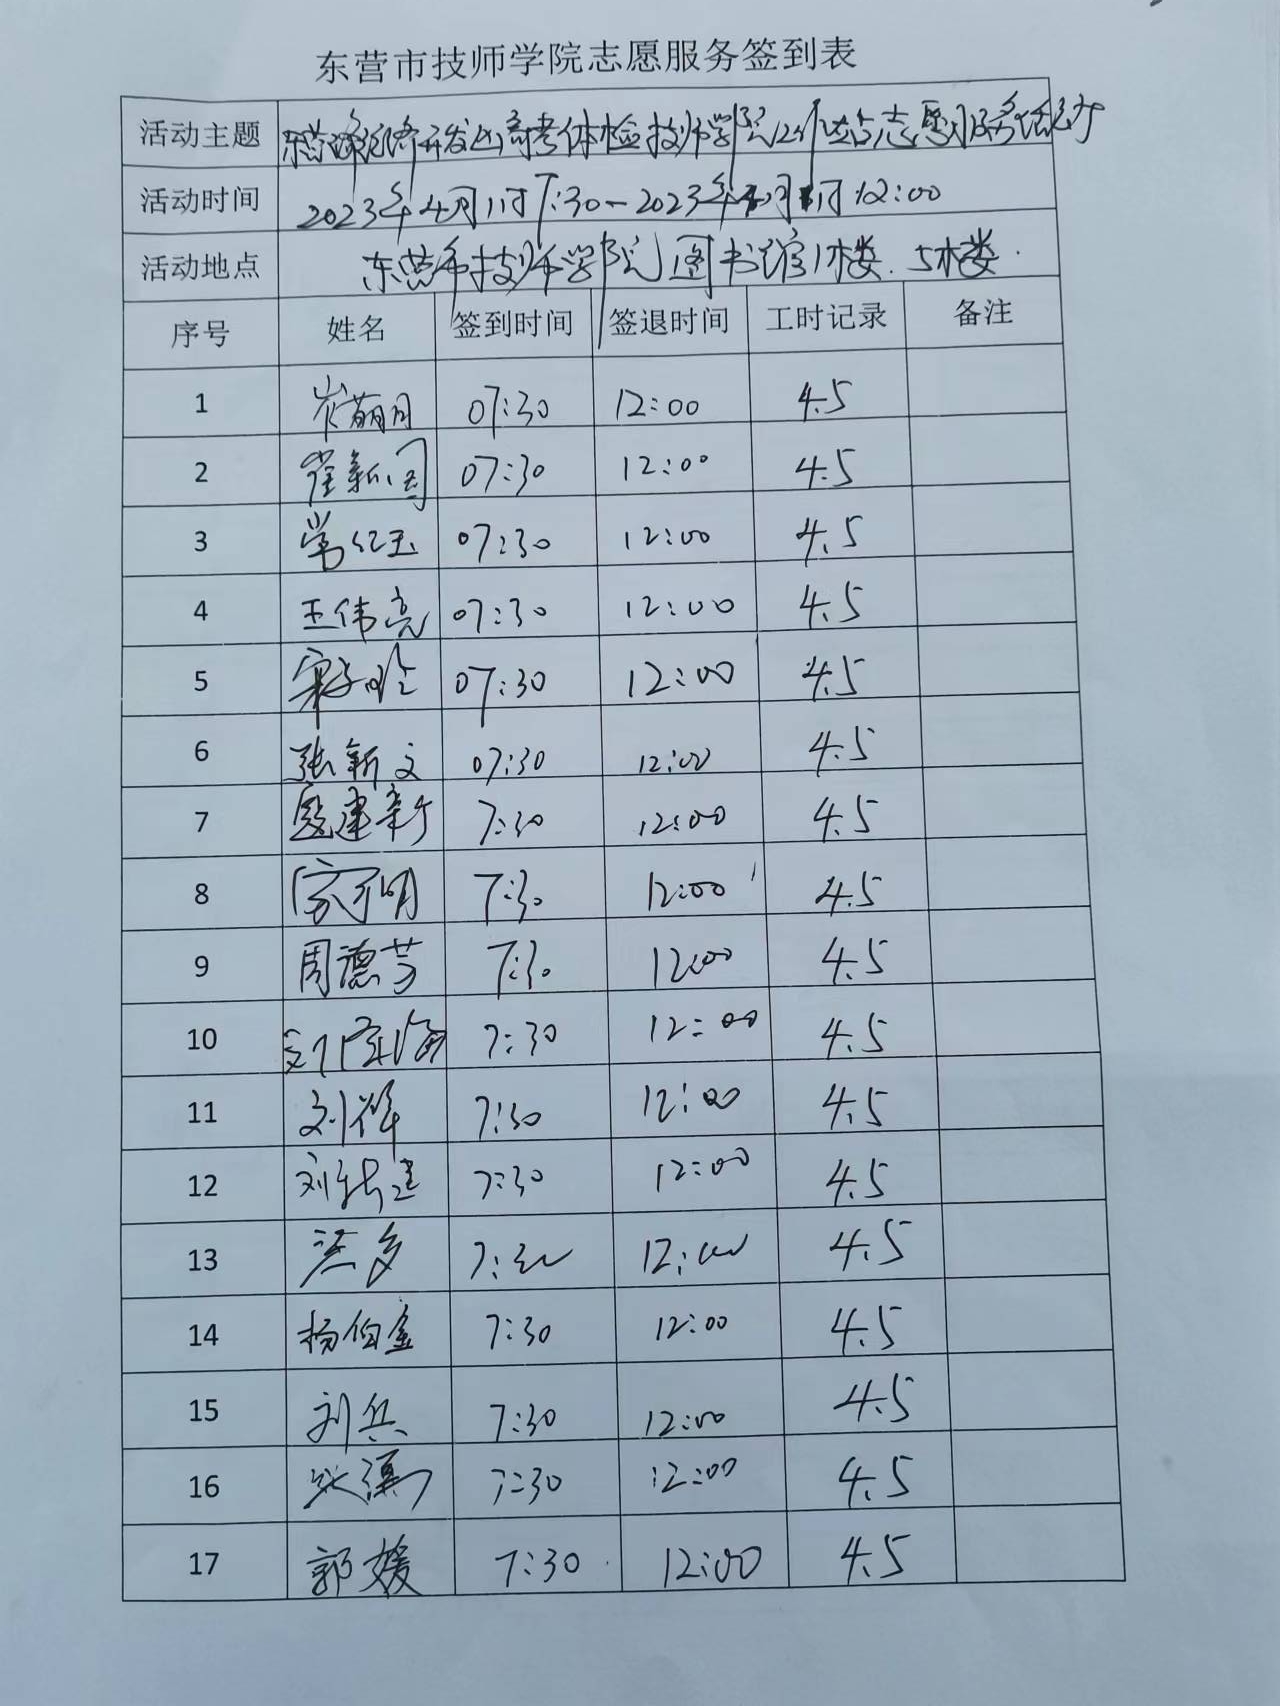 东营市技师学院志愿服务签到表
活动主题 东营经济开发区高考体检技师学院工作站志愿服务活动
活动时间 2023年4月1日7:30-2023年4月1日12:00
活动地点 东营市技师学院图书馆1楼、5楼
序号 姓名 签到时间 签退时间 工时记录 备注
1 崔萌月 07:30 12:00 4.5
2 崔新国 07:30 12:00 4.5
3 常红玉 07:30 12:00 4.5
4 王伟亮 07:30 12:00 4.5
5 07:30 12:00 4.5
6 张新文 07:30 12:00 4.5
7 建新 7:30 12:00 4.5
8 明 7:30 12:00 4.5
9 周德芳 7:30 12:00 4.5
10 7:30 12:00 4.5
11 刘祥 7:30 12:00 4.5
12 刘 7:30 12:00 4.5
13 7:30 12:00 4.5
14 杨伯金 7:30 12:00 4.5
15 刘兵 7:30 12:00 4.5
16 7:30 12:00 4.5
17 郭媛 7:30 12:00 4.5